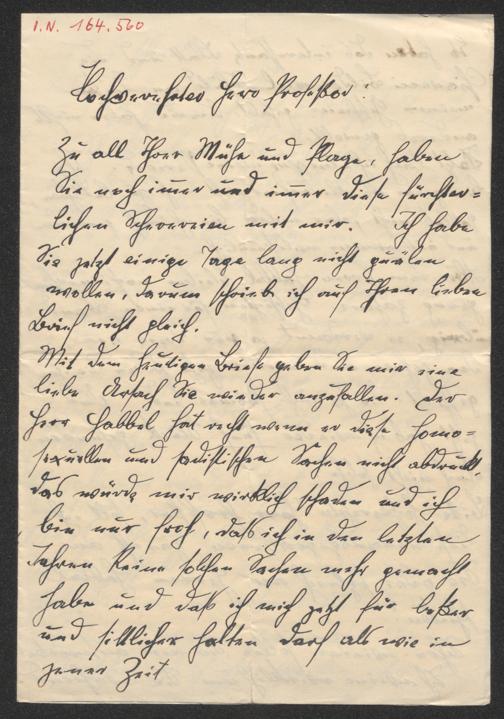 I.N. 164.560
Hochverehrter Herr Professor!
Zu all Ihrer Mühe und Plage, haben
Sie noch immer und immer diese fürchter=
lichen Scherereien mit mir. Ich habe
Sie jetzt einige Tage lang nicht quälen
wollen, darum schrieb ich auf Ihren lieben
Brief nicht gleich.
Mit dem heutigen Briefe geben Sie mir eine
liebe Ursach Sie wieder anzufallen. Der
Herr Habbel hat recht wenn er diese homo=
sexuellen und sadistischen Sachen nicht abdruckt,
das würde mir wirklich schaden und ich
bin nur froh, daß ich in den letzten
Jahren keine solchen Sachen mehr gemacht
habe und daß ich mich jetzt für beßer
und sittlicher halten darf als wie in
jener Zeit